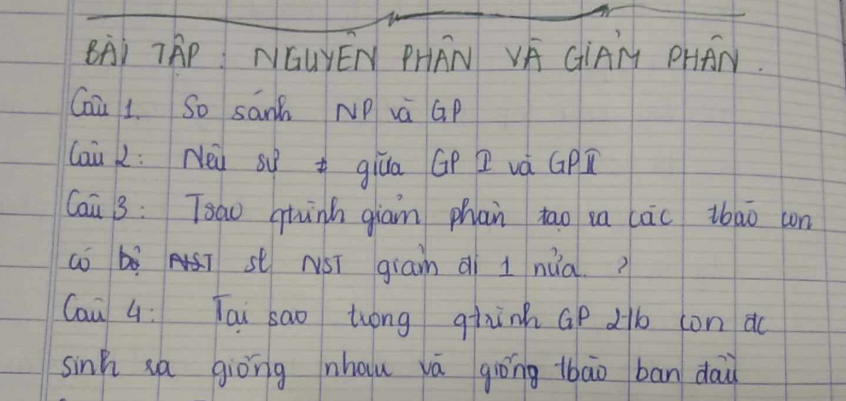 BÀI TẬP : NGUYÊN PHÂN VÀ GIẢM PHÂN.
Câu 1. So sánh NP và GP
Câu 2: Nêu sự ≠ giữa GP I và GP II
Câu 3: Tsao qtrình giảm phân tạo ra các tbào con
có bộ sl NST giảm đi 1 nửa ?
Câu 4: Tại sao trong qtrình GP 2tb con đc
sinh ra giống nhau và giống tbào ban đầu